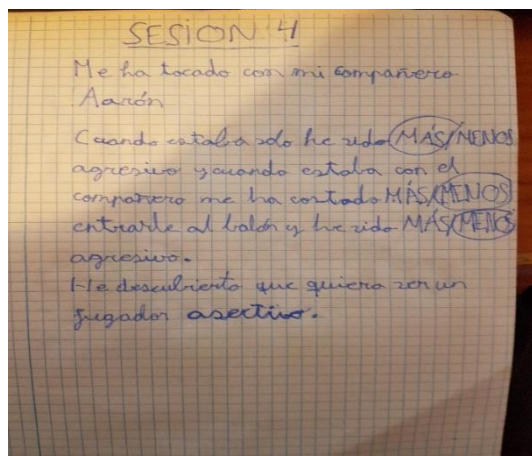 SESIÓN 4
Me ha tocado con mi compañero
Aarón
Cuando estaba solo he sido MÁS/MENOS
agresivo y cuando estaba con el
compañero me ha costado MÁS/MENOS
entrarle al balón y he sido MÁS/MENOS
agresivo.
He descubierto que quiero ser un
jugador asertivo.